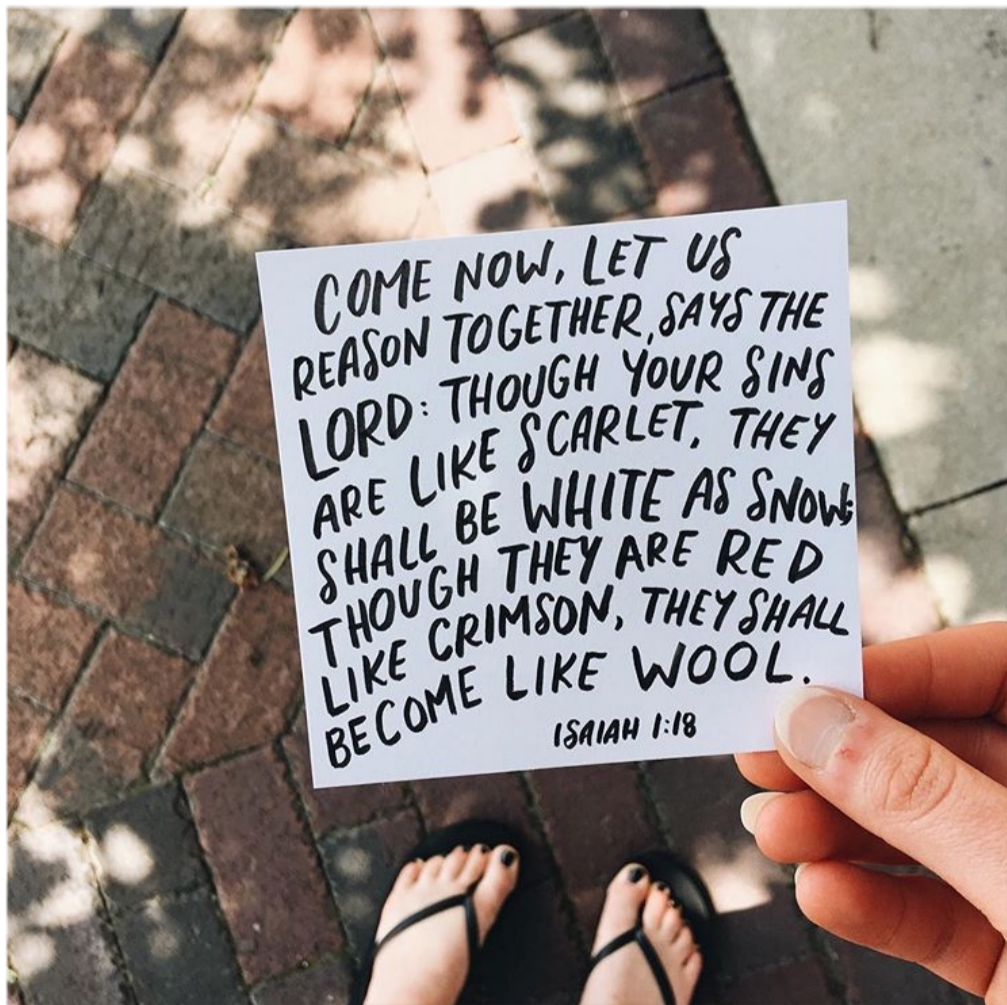 COME NOW, LET US
REASON TOGETHER, SAYS THE
LORD: THOUGH YOUR SINS
ARE LIKE SCARLET, THEY
SHALL BE WHITE AS SNOW;
THOUGH THEY ARE RED
LIKE CRIMSON, THEY SHALL
BECOME LIKE WOOL.
ISAIAH 1:18